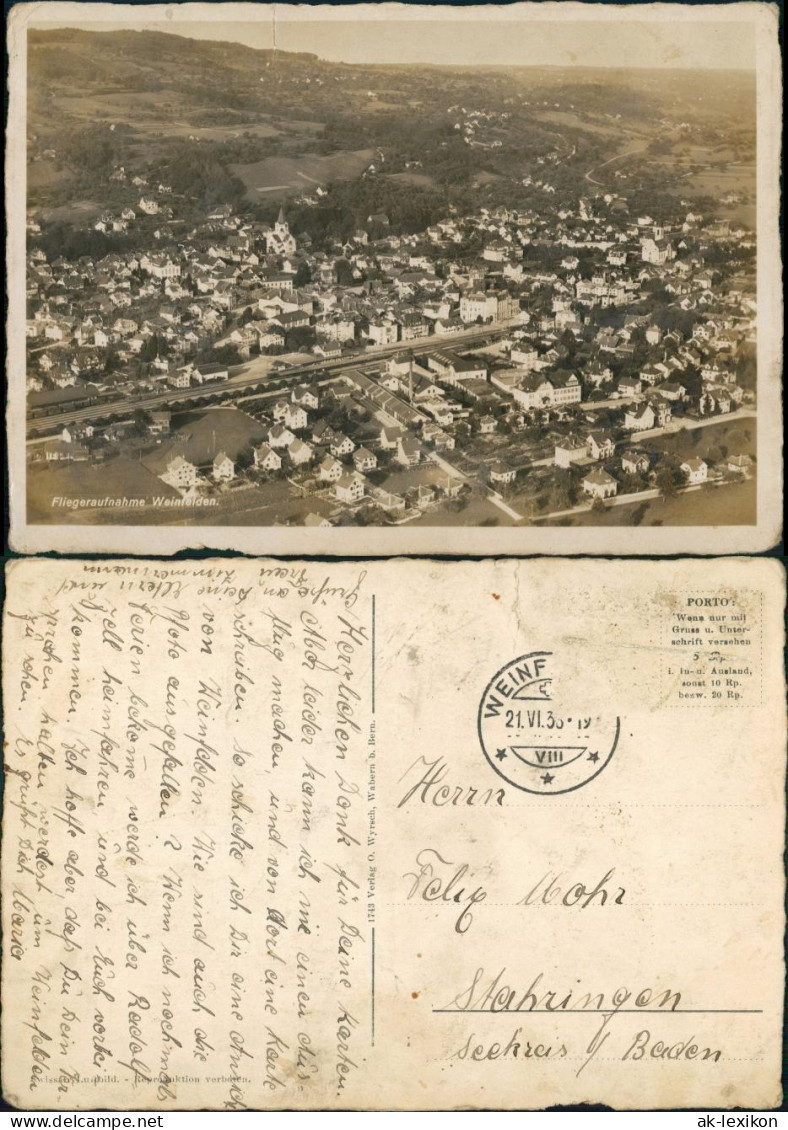 Fliegeraufnahme Weinfelden.
PORTO:
Wenn nur mit
Gruss u. Unter-
schrift versehen
5 Rp.
i. In- u. Ausland,
sonst 10 Rp.
bezw. 20 Rp.
WEINF
21.VI.36-19
VIII
Herrn
Felix Mohr
Stahringen
Seekreis / Baden
1713 Verlag O. Wyrsch, Wabern b. Bern.
Luftbild. - Reproduktion verboten.
Herzlichen Dank für Deine Karten.
Aber leider kann ich nie einen Aus-
flug machen, und von dort eine Karte
schreiben. So schicke ich Dir eine Ansich
von Weinfelden. Wie sind auch die
Photo ausgefallen? Wenn ich nochmals
Ferien bekomme werde ich über Radolf-
zell heimfahren, und bei Euch vorbei
kommen. Ich hoffe aber, daß Du Dein Ver-
sprechen halten werdest um Weinfelden
zu sehen. Es grüßt Dich Mario
Grüße an Deine Eltern und
Zimmermann
ak-lexikon